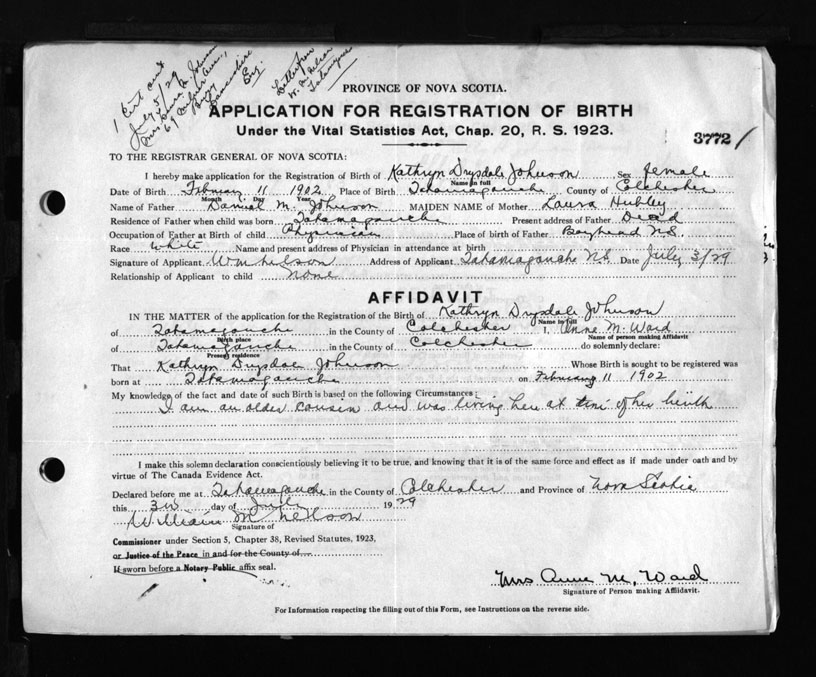 1 Cert sent
July 5/29
Mrs Laura M. Johnson
Eng.
Letter from
W. M. Nelson
Tatamagouche
PROVINCE OF NOVA SCOTIA.
APPLICATION FOR REGISTRATION OF BIRTH
Under the Vital Statistics Act, Chap. 20, R. S. 1923.
3772
TO THE REGISTRAR GENERAL OF NOVA SCOTIA:
I hereby make application for the Registration of Birth of Kathryn Drysdale Johnson Sex female
Name in full
Date of Birth February 11 1902 Place of Birth Tatamagouche County of Colchester
Month Day Year
Name of Father Daniel M. Johnson MAIDEN NAME of Mother Laura Hubley
Residence of Father when child was born Tatamagouche Present address of Father Dead
Occupation of Father at Birth of child Physician Place of birth of Father Bayhead NS
Race White Name and present address of Physician in attendance at birth
Signature of Applicant Wm Nelson Address of Applicant Tatamagouche N.S. Date July 3/29
Relationship of Applicant to child None
AFFIDAVIT
IN THE MATTER of the application for the Registration of the Birth of Kathryn Drysdale Johnson
Name in full
of Tatamagouche in the County of Colchester I, Anne M. Ward
Birth place Name of person making Affidavit
of Tatamagouche in the County of Colchester do solemnly declare:
Present residence
That Kathryn Drysdale Johnson Whose Birth is sought to be registered was
born at Tatamagouche on February 11 1902
My knowledge of the fact and date of such Birth is based on the following Circumstances:
I am an older cousin and was living here at time of her birth
I make this solemn declaration conscientiously believing it to be true, and knowing that it is of the same force and effect as if made under oath and by
virtue of The Canada Evidence Act.
Declared before me at Tatamagouche in the County of Colchester and Province of Nova Scotia
this 3rd day of July 1929
William M Nelson
Signature of
Commissioner under Section 5, Chapter 38, Revised Statutes, 1923,
or Justice of the Peace in and for the County of
If sworn before a Notary Public affix seal.
Mrs Anne M. Ward
Signature of Person making Affidavit.
For Information respecting the filling out of this Form, see Instructions on the reverse side.